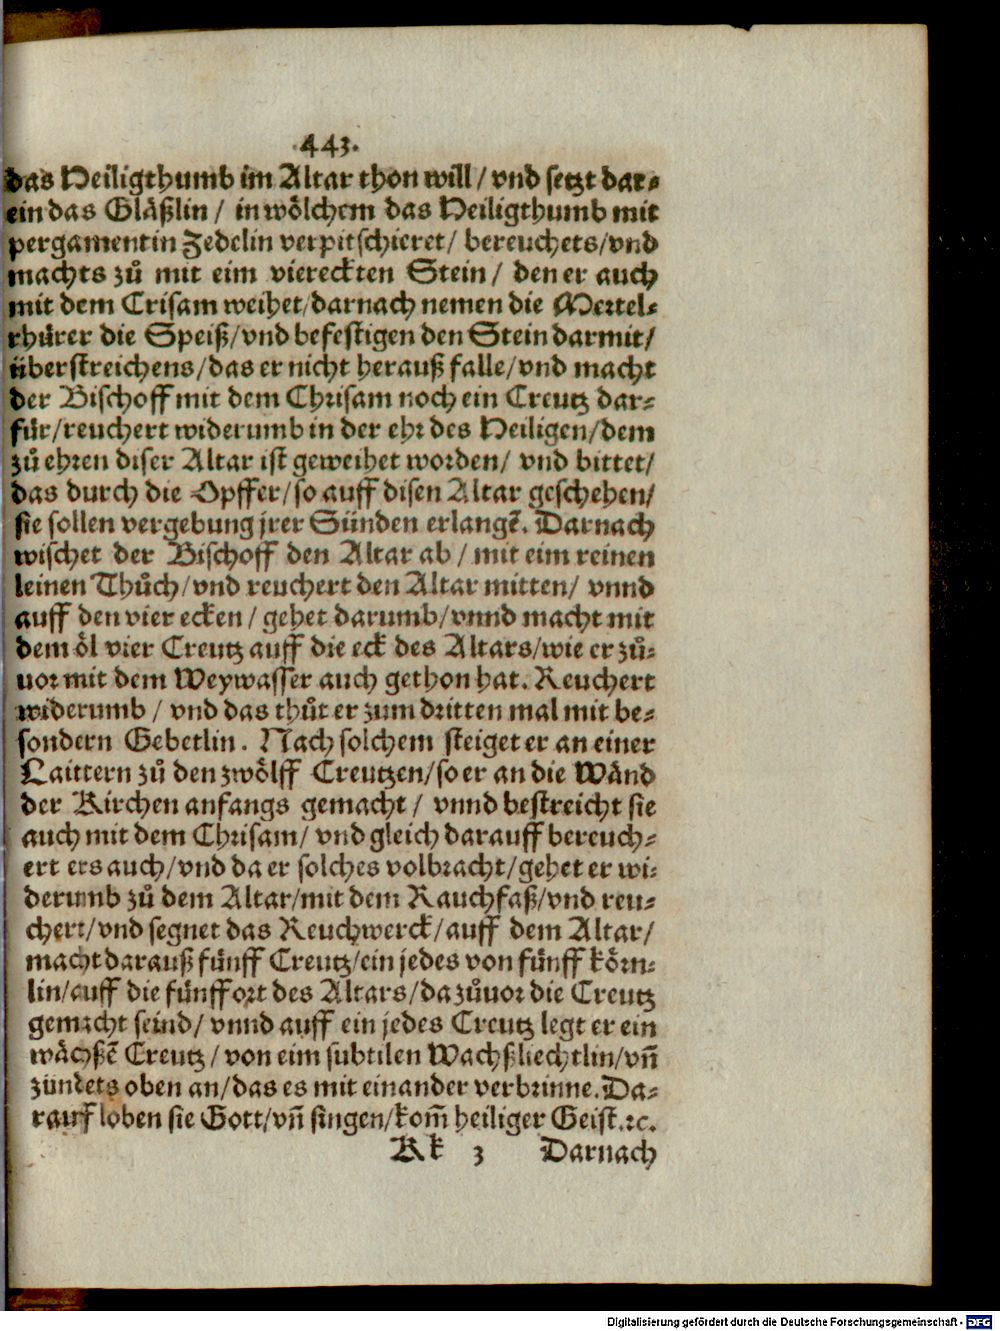 ·443·
das Heiligthumb im Altar thon will/ vnd setzt dar-
ein das Gläßlin/ in woͤlchem das Heiligthumb mit
pergamentin Zedelin verpitschieret/ bereuchets/vnd
machts zuͦ mit eim viereckten Stein/ den er auch
mit dem Crisam weihet/darnach nemen die Mertel-
rhürer die Speiß/vnd befestigen den Stein darmit/
überstreichens/das er nicht herauß falle/vnd macht
der Bischoff mit dem Chrisam noch ein Creutz dar-
für/reuchert widerumb in der ehr des Heiligen/dem
zuͦ ehren diser Altar ist geweihet worden/ vnd bittet/
das durch die Opffer/so auff disen Altar geschehen/
sie sollen vergebung jrer Sünden erlangẽ. Darnach
wischet der Bischoff den Altar ab/ mit eim reinen
leinen Thuͦch/vnd reuchert den Altar mitten/ vnnd
auff den vier ecken/ gehet darumb/vnnd macht mit
dem oͤl vier Creutz auff die eck des Altars/wie er zuͦ-
uor mit dem Weywasser auch gethon hat. Reuchert
widerumb/ vnd das thuͦt er zum dritten mal mit be-
sondern Gebetlin. Nach solchem steiget er an einer
Laittern zuͦ den zwoͤlff Creutzen/so er an die Waͤnd
der Kirchen anfangs gemacht/ vnnd bestreicht sie
auch mit dem Chrisam/ vnd gleich darauff bereuch-
ert ers auch/vnd da er solches volbracht/gehet er wi-
derumb zuͦ dem Altar/mit dem Rauchfaß/vnd reu-
chert/vnd segnet das Reuchwerck/auff dem Altar/
macht darauß fünff Creutz/ein jedes von fünff koͤrn-
lin/auff die fünff ort des Altars/da zuͦuor die Creutz
gemacht seind/ vnnd auff ein jedes Creutz legt er ein
waͤchßẽ Creutz/ von eim subtilen Wachßliechtlin/vñ
zündets oben an/das es mit einander verbrinne. Da-
rauf loben sie Gott/vñ singen/kom̃ heiliger Geist.ꝛc.
Kk 3 Darnach
Digitalisierung gefördert durch die Deutsche Forschungsgemeinschaft - DFG